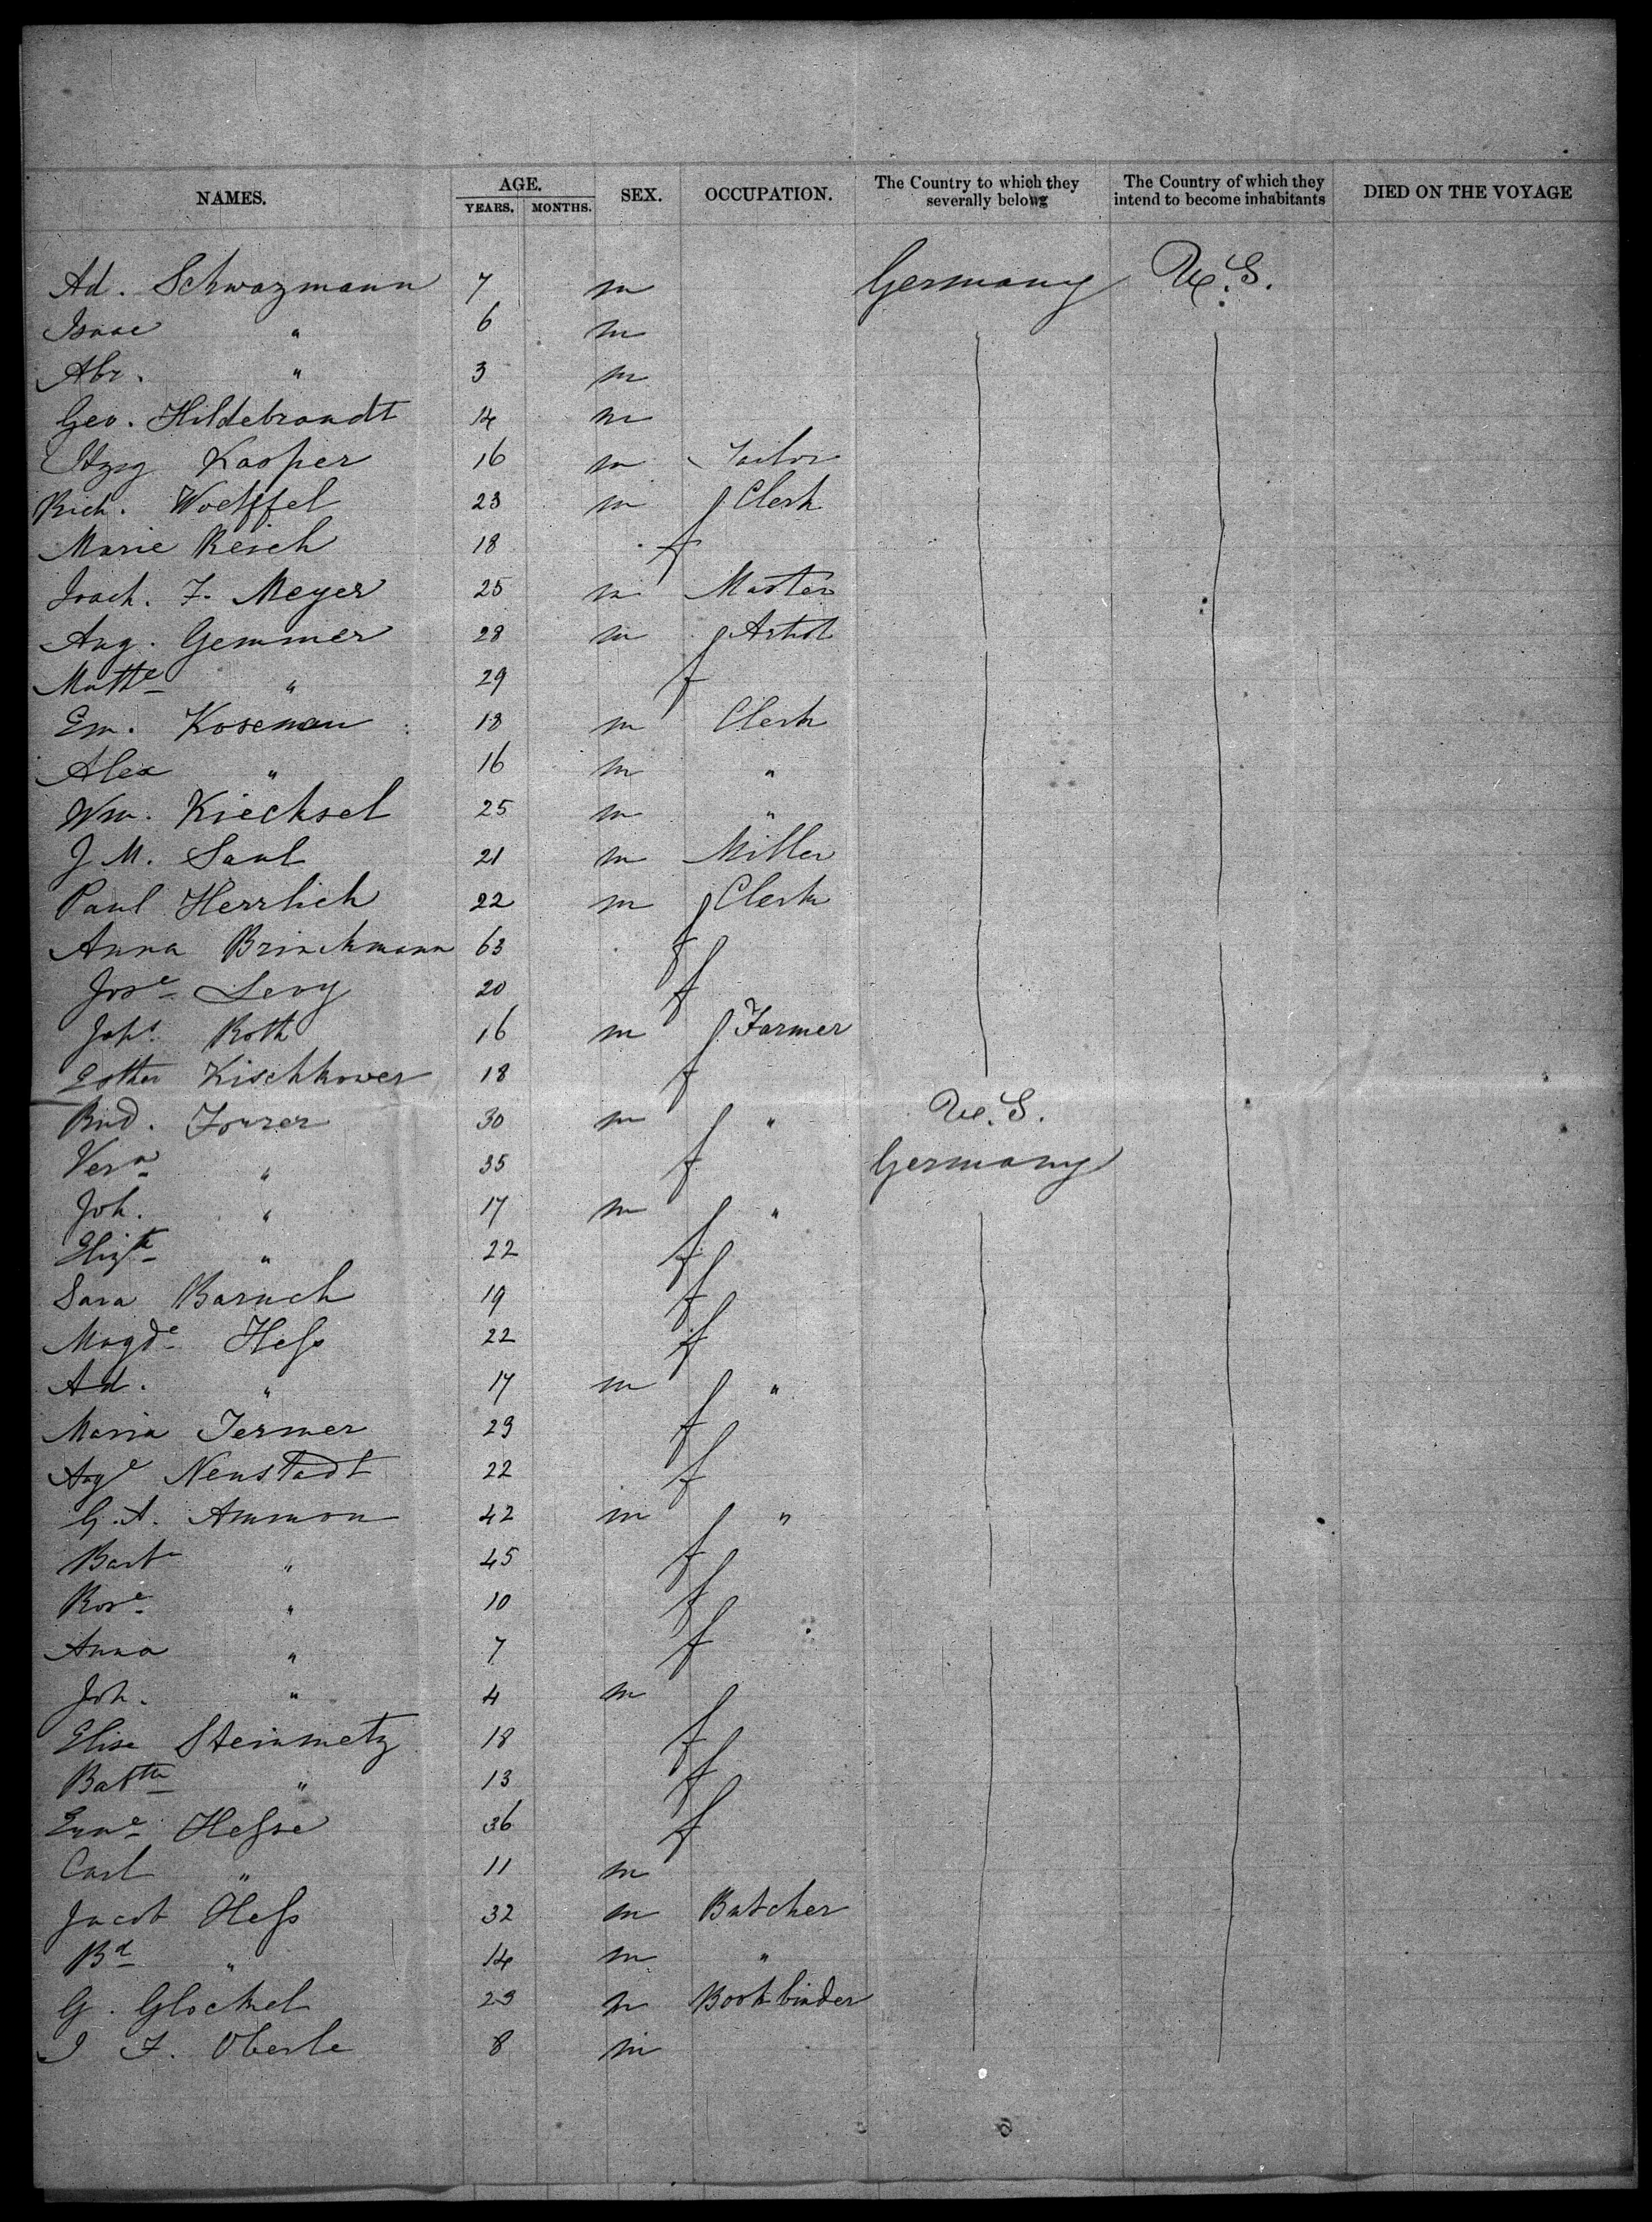 NAMES. AGE. YEARS. MONTHS. SEX. OCCUPATION. The Country to which they severally belong The Country of which they intend to become inhabitants DIED ON THE VOYAGE
Ad. Schwazmann 7 m Germany U.S.
Isaac " 6 m
Abr. " 3 m
Geo. Hildebrandt 14 m
Itzig Kasper 16 m Tailor
Rich. Woelffel 23 m Clerk
Marie Resch 18 f
Joach. F. Meyer 25 m Master
Aug. Gemmer 28 m Artist
Mathe " 29 f
Em. Kosenau 18 m Clerk
Alex " 16 m "
Wm. Kiecksel 25 m "
J M. Saul 21 m Miller
Paul Herrlich 22 m Clerk
Anna Brinckmann 63 f
Jose Levy 20 f
Roth 16 m Farmer
Esther Kischkower 18 f
Rud. 30 m " U.S.
Vera " 35 f Germany
Joh. " 17 m "
Elizth " 22 f
Sara Baruch 19 f
Magde Heſs 22 f
Ad. " 17 m "
Maria Termer 23 f
Auge Neustadt 22 f
G. A. Ammon 42 m "
Barba " 45 f
Rose " 10 f
Anna " 7 f
Joh. " 4 m
Elise Steinmetz 18 f
Batte " 13 f
Erne Heſse 36 f
Carl " 11 m
Jacob Heſs 32 m Butcher
Bd " 14 m "
G. Glockel 23 m Bookbinder
J F. Oberle 8 m